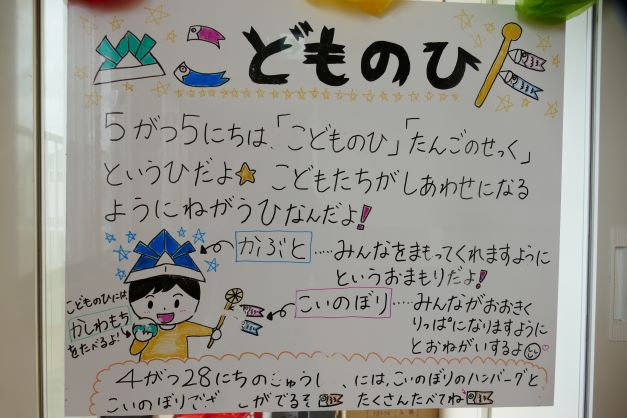 こどものひ
5がつ5にちは、「こどものひ」「たんごのせっく」
というひだよ★ こどもたちがしあわせになる
ようにねがうひなんだよ!
かぶと……みんなをまもってくれますように
というおまもりだよ!
こどものひには
かしわもち
をたべるよ!
こいのぼり……みんながおおきく
りっぱになりますように
とおねがいするよ
4がつ28にちの には、こいのぼりのハンバーグと
こいのぼり がでるぞ たくさんたべてね